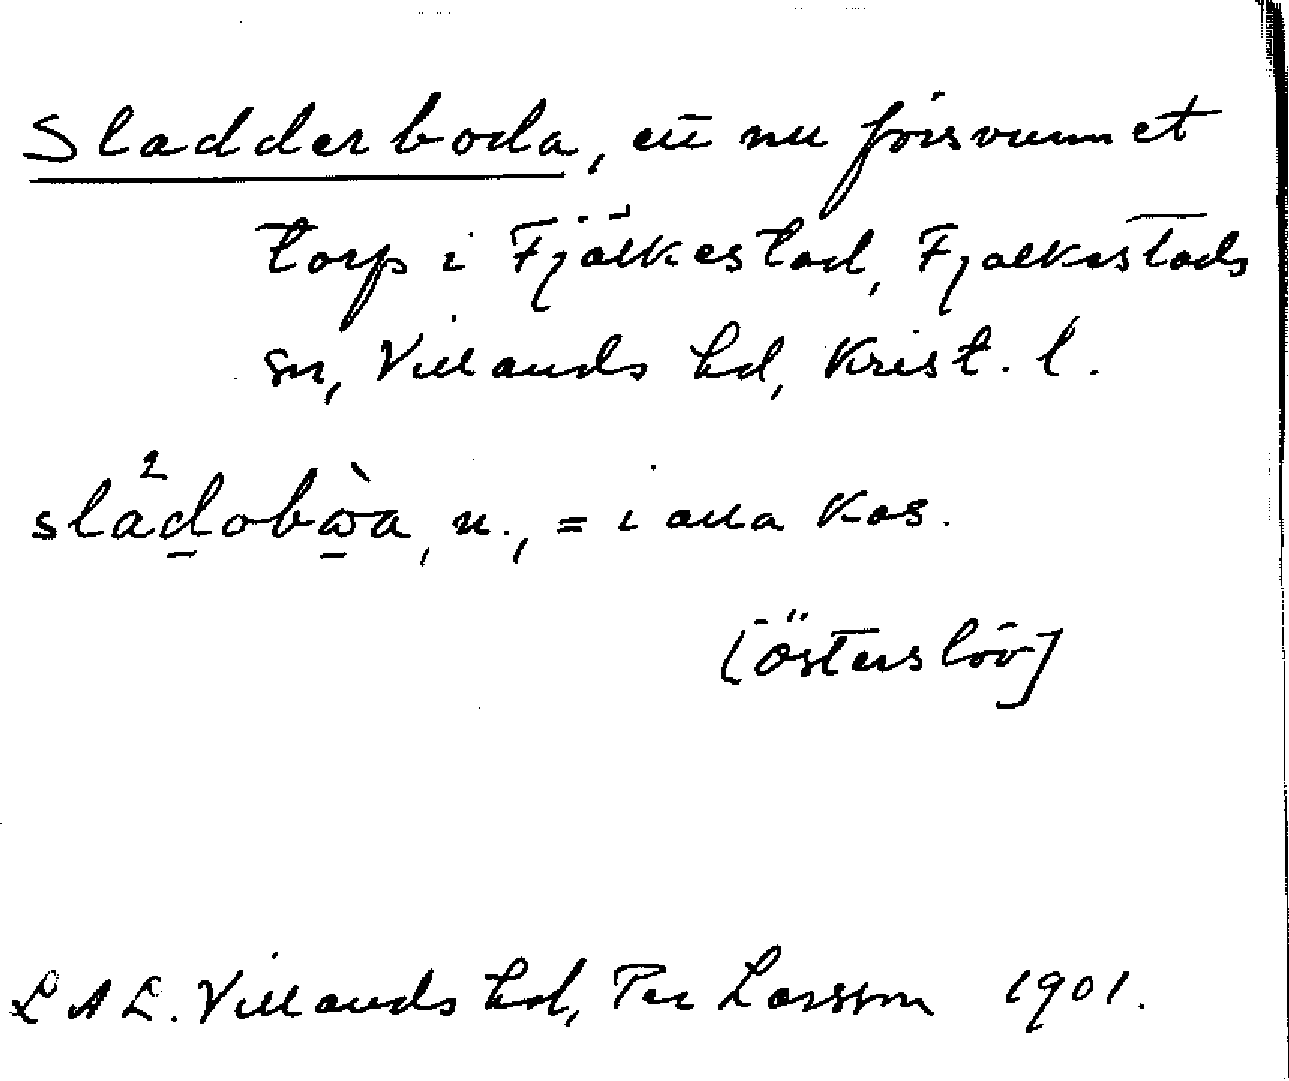 Sladderboda, ett nu försvunnet
torp i Fjälkestad, Fjälkestads
sn, Villands hd, Krist. l.
slä²d̲obὼ̲a, n., = i alla kas.
[Österslöv]
LAL. Villands hd, Per Larsson 1901.